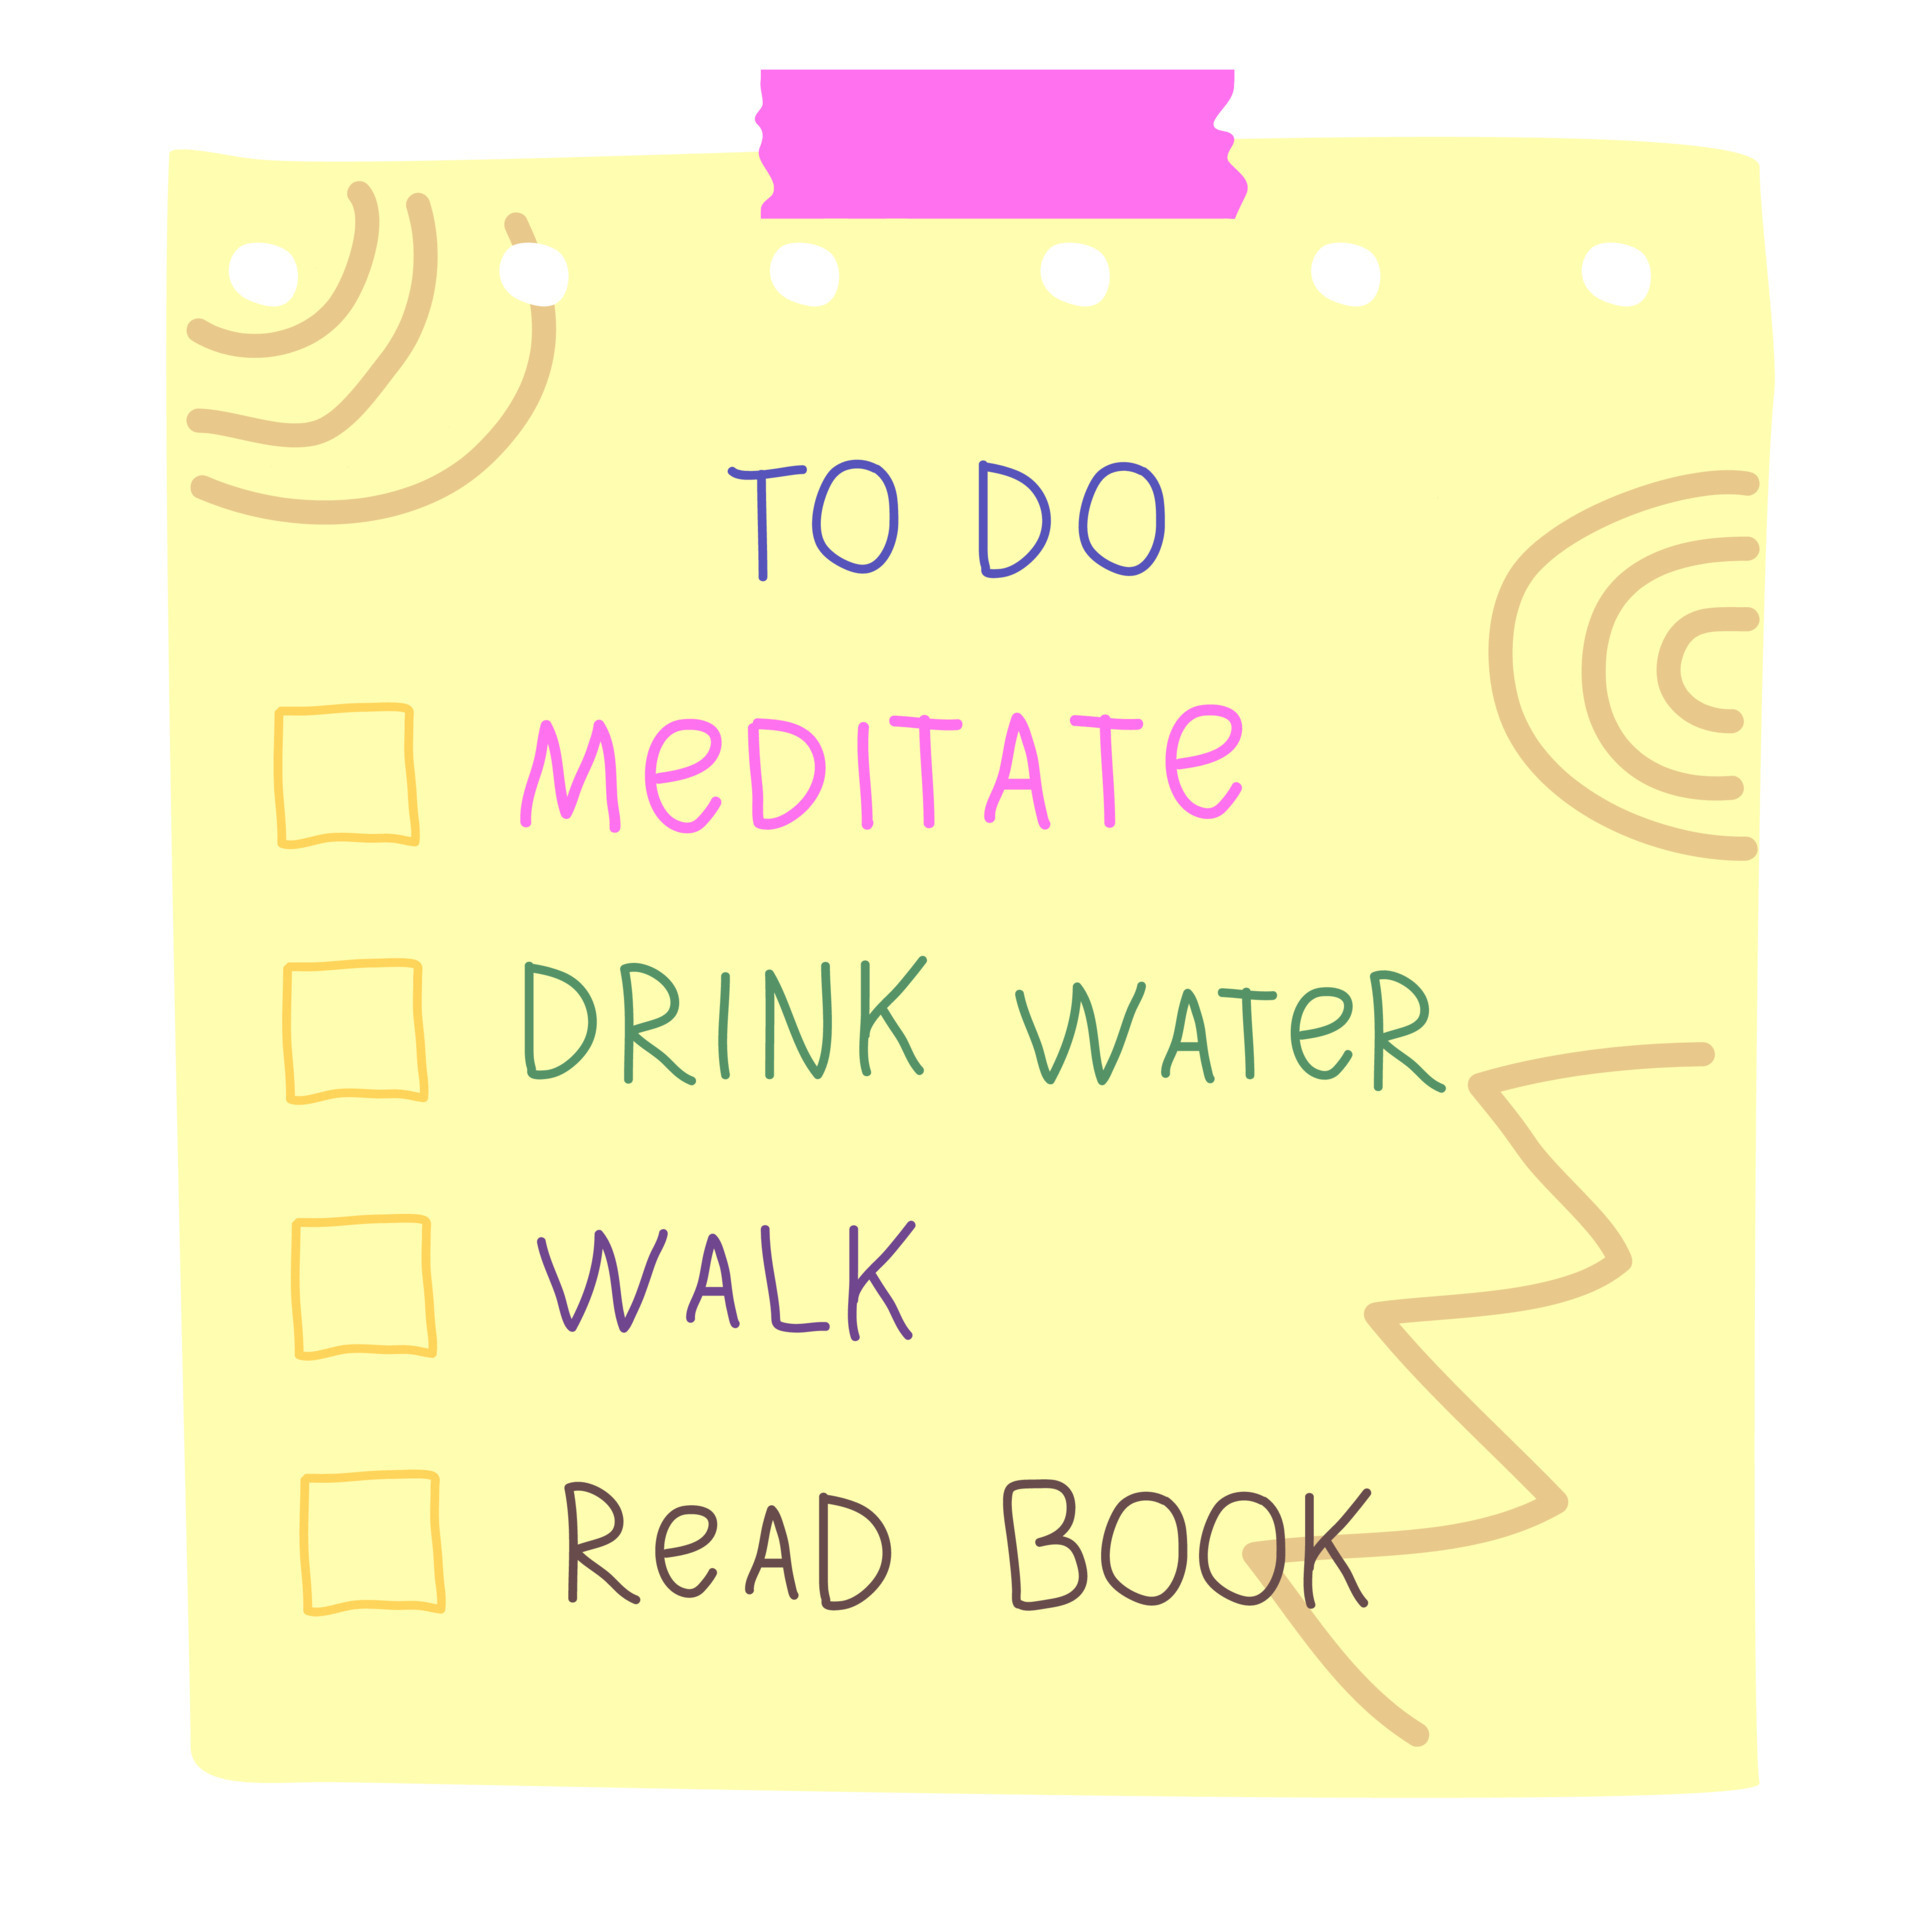 TO DO
MeDITATe
DRINK WATeR
WALK
ReAD BOOK